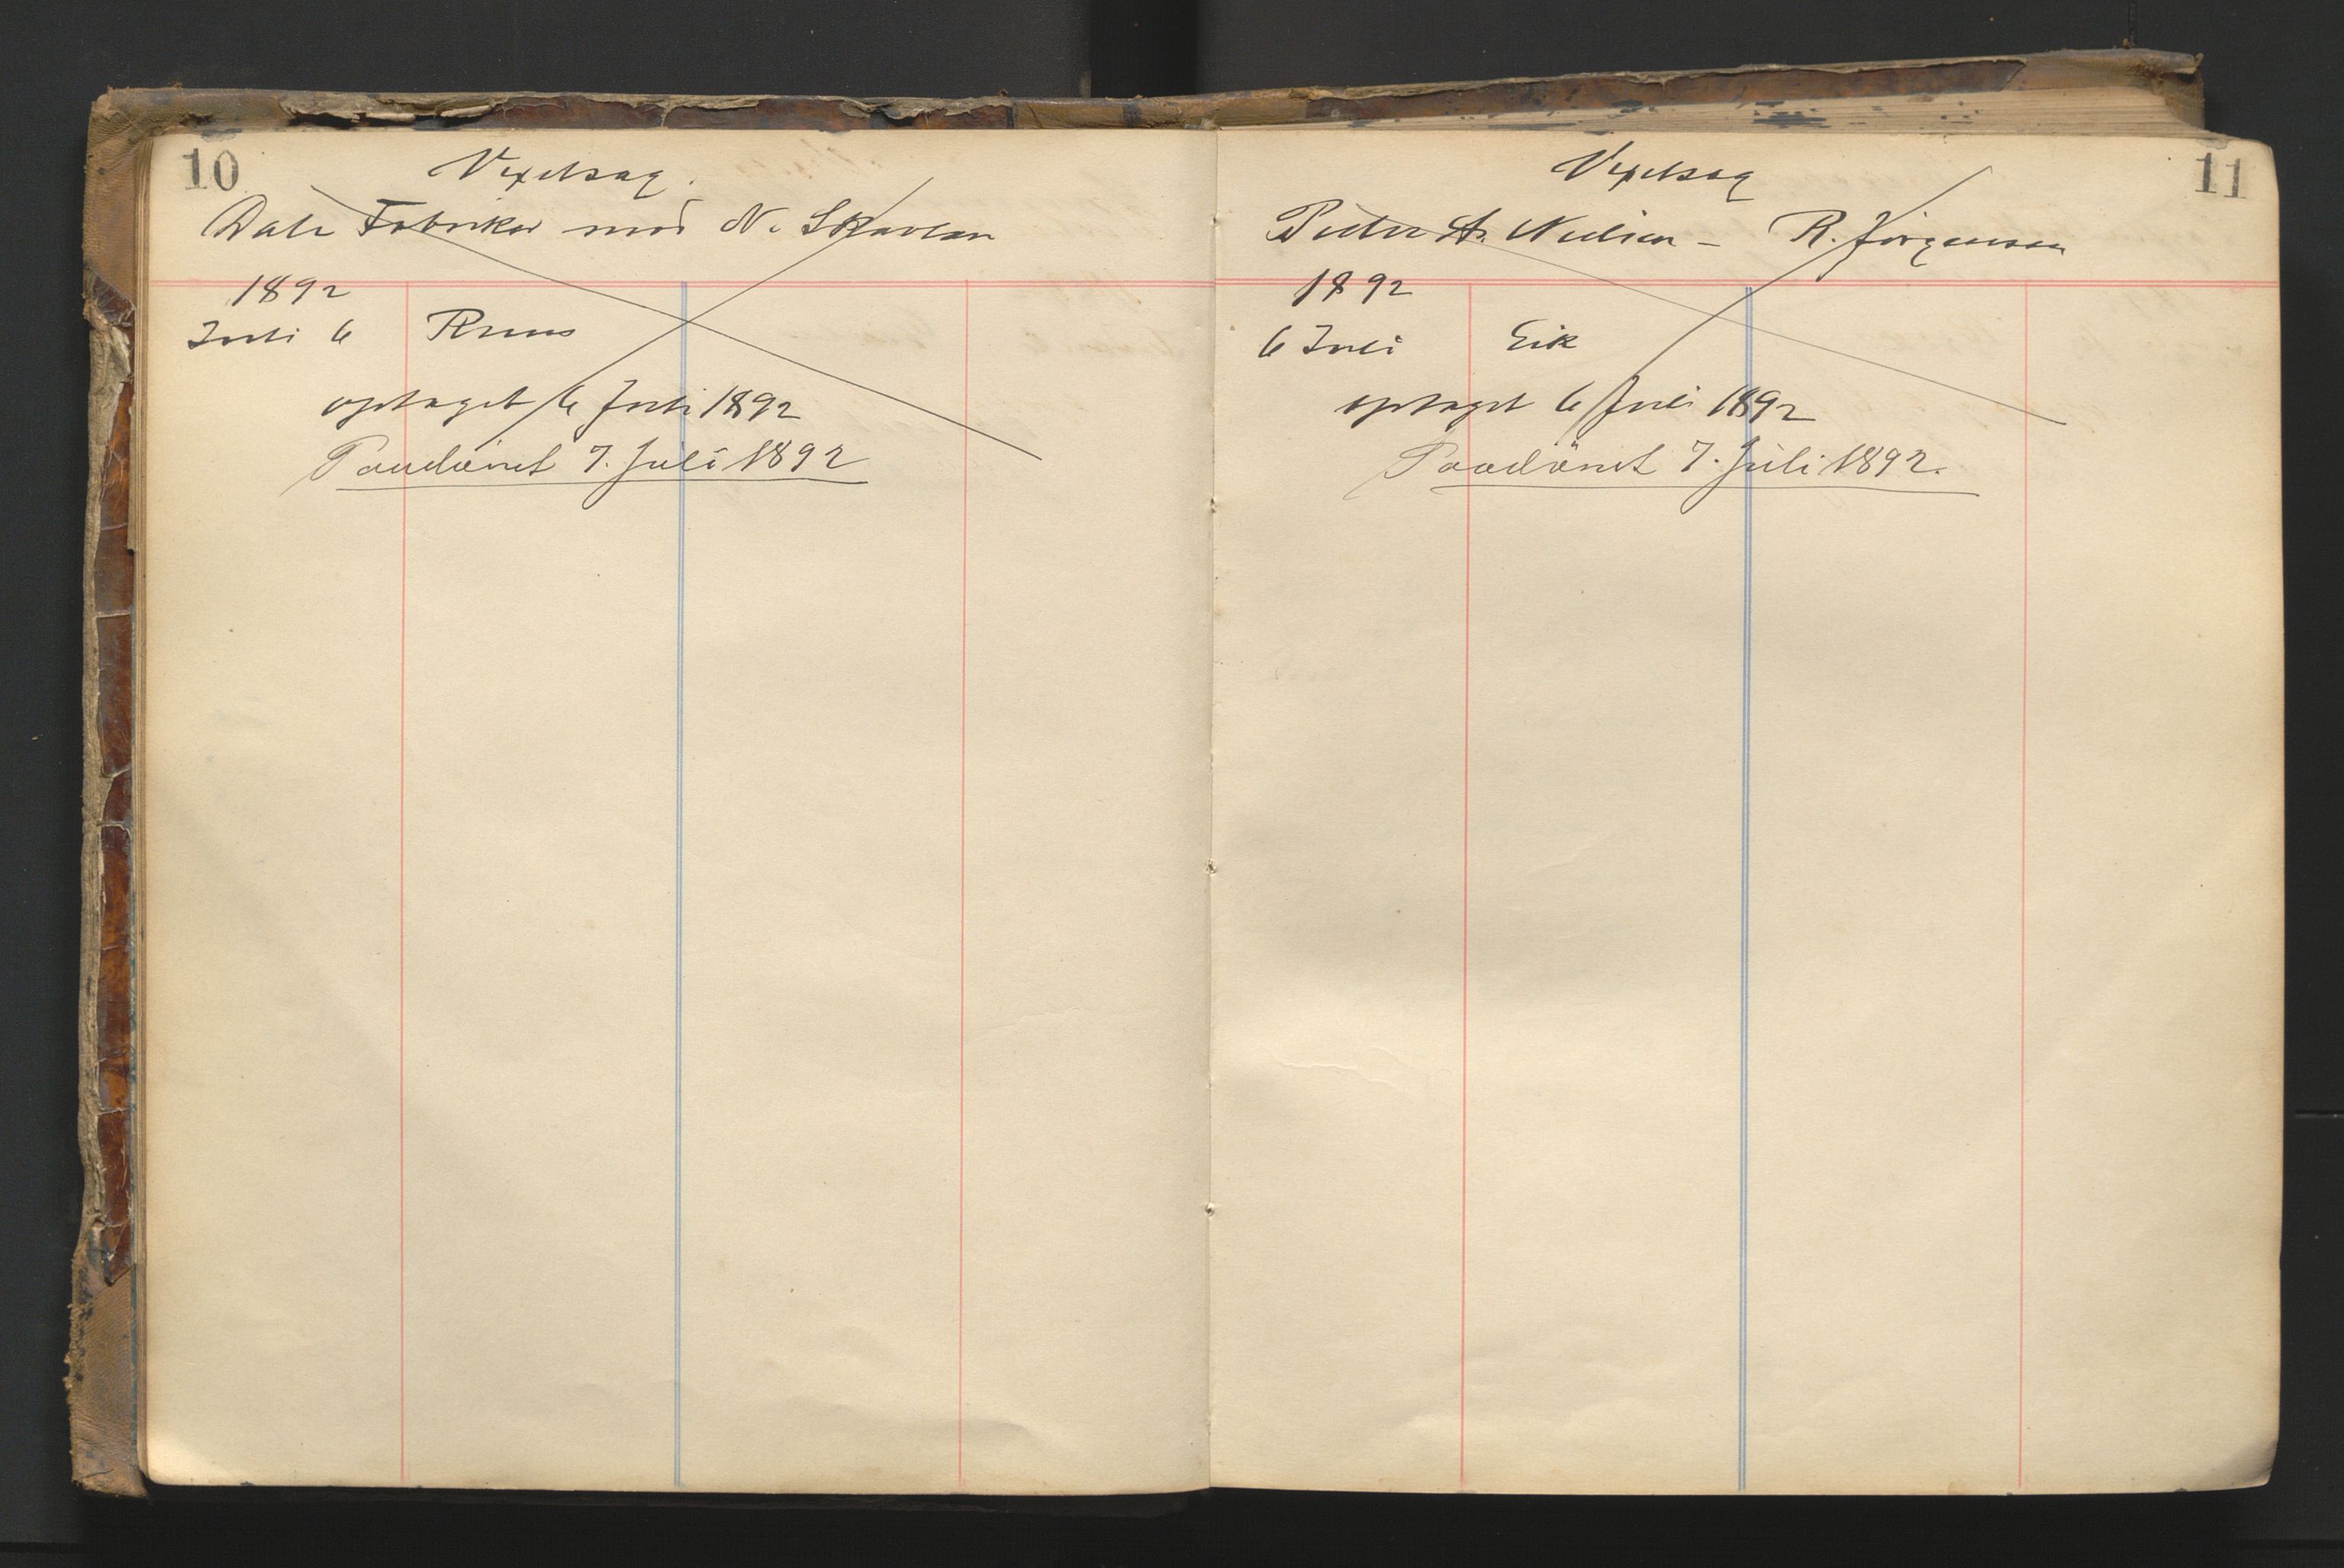 10
Vexelsag.
Dale Fabriker mod N. Skavlan
1892
Juli 6 Ruus
optaget 6 Juli 1892
Paadömt 7. Juli 1892
11
Vexelsag
Peter A. Nielsen - R. Jörgensen
1892
6 Juli Eik
optaget 6 Juli 1892
Paadömt 7. Juli 1892.